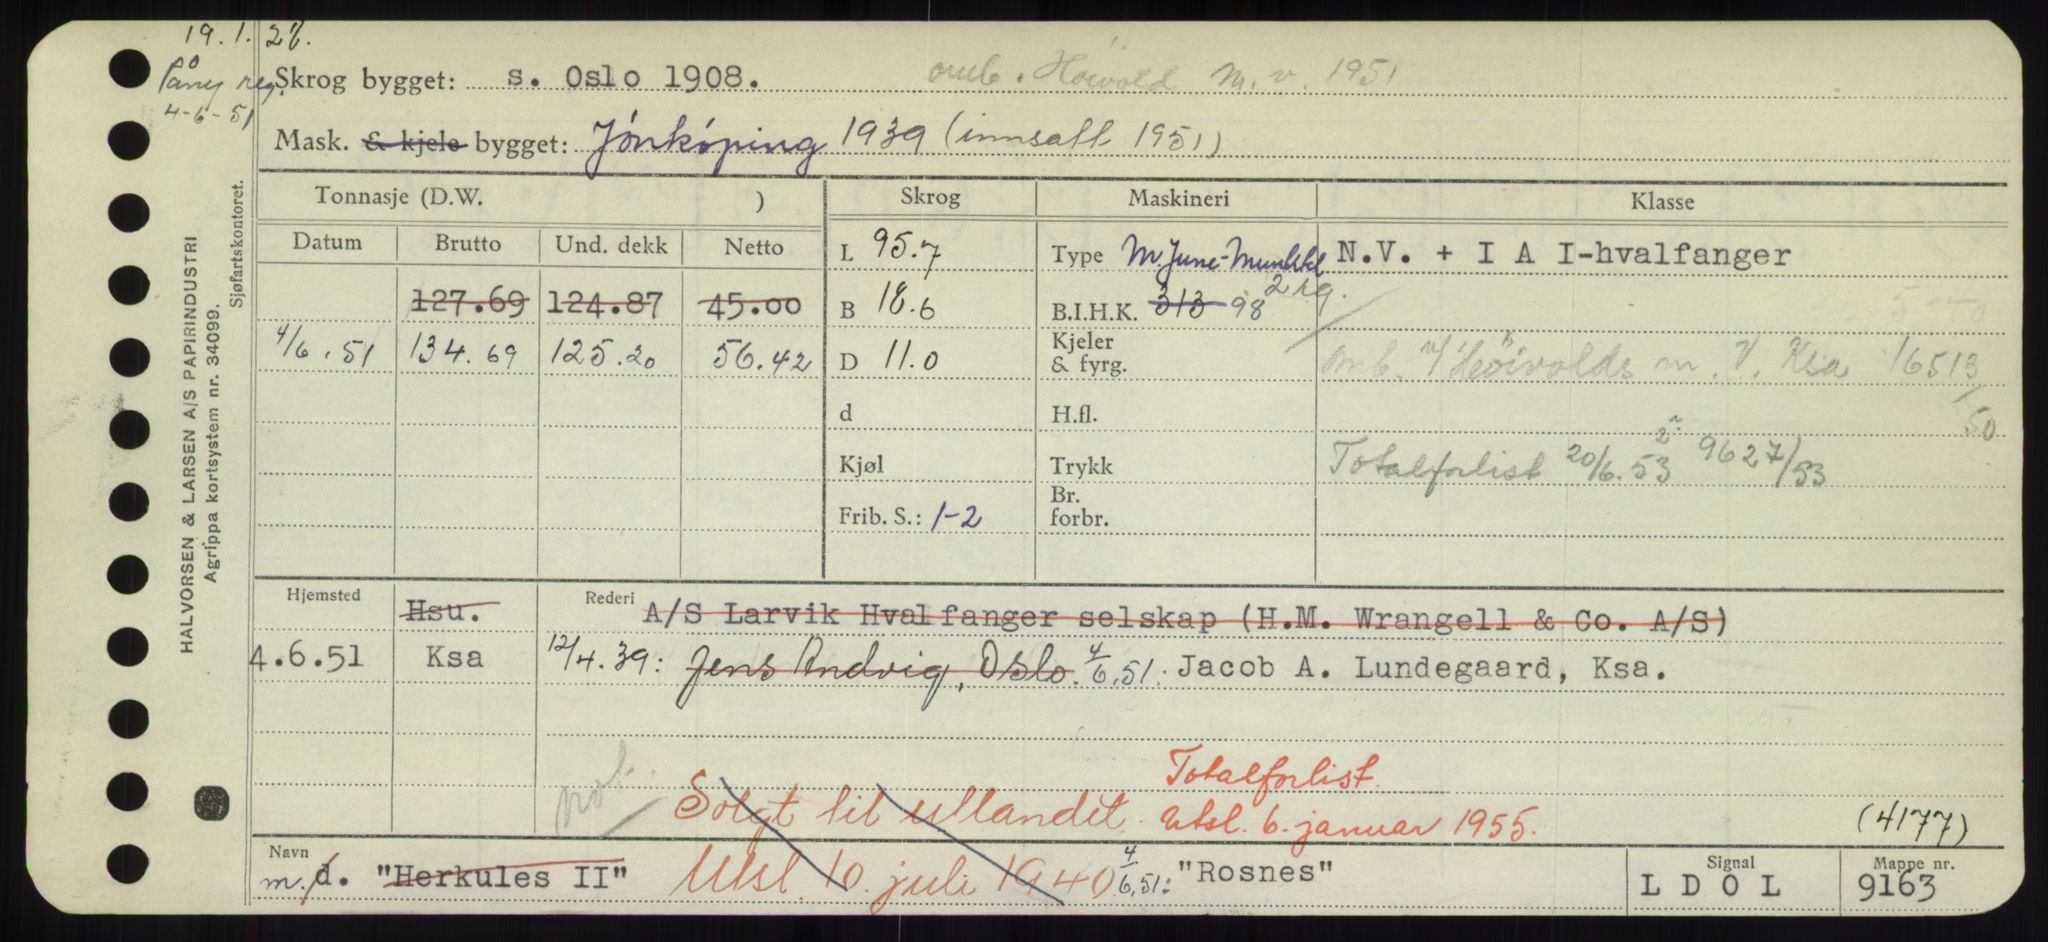 19.1.28.
Påny reg.
4-6-51
Skrog bygget: s. Oslo 1908. omb. Høivold M.v. 1951
Mask. & kjele bygget: Jönköping 1939 (innsatt 1951)
Tonnasje (D.W. ) Skrog Maskineri Klasse
Datum Brutto Und. dekk Netto L 95.7 Type M. June-Munktel N.V. + I A I-hvalfanger
2 rg.
127.69 124.87 45.00 B 18.6 B.I.H.K. 313 98
4/6.51 134.69 125.20 56.42 D 11.0 Kjeler & fyrg. omb. v/ Höivolds m. V. Ksa 16513/50
d H.fl.
Kjøl Trykk Totalforlist 20/6.53 9627/53
Frib. S.: 1-2 Br. forbr.
Hjemsted Hsu. Rederi A/S Larvik Hvalfangerselskap (H.M. Wrangell & Co. A/S)
4.6.51 Ksa 12/4.39: Jens Andvig, Oslo. 4/6.51. Jacob A. Lundegaard, Ksa.
not. Solgt til utlandet. Totalforlist.
Utsl. 6. januar 1955. (4177)
Navn Signal Mappe nr.
m/d. "Herkules II" Utsl. 10. juli 1940 4/6.51: "Rosnes" L D O L 9163
HALVORSEN & LARSEN A/S PAPIRINDUSTRI
Agrippa kortsystem nr. 34099.
Sjøfartskontoret.